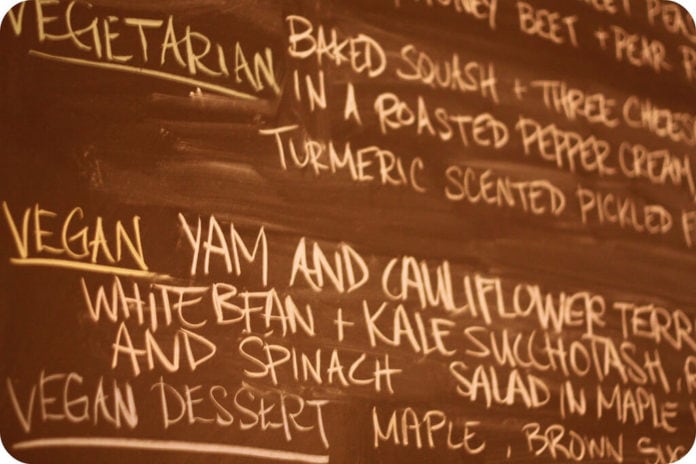 HONEY BEET + PEAR
VEGETARIAN BAKED SQUASH + THREE CHEES
IN A ROASTED PEPPER CREAM
TURMERIC SCENTED PICKLED
VEGAN YAM AND CAULIFLOWER TERR
WHITE BEAN + KALE SUCCHOTASH,
AND SPINACH SALAD IN MAPLE
VEGAN DESSERT MAPLE, BROWN SUG